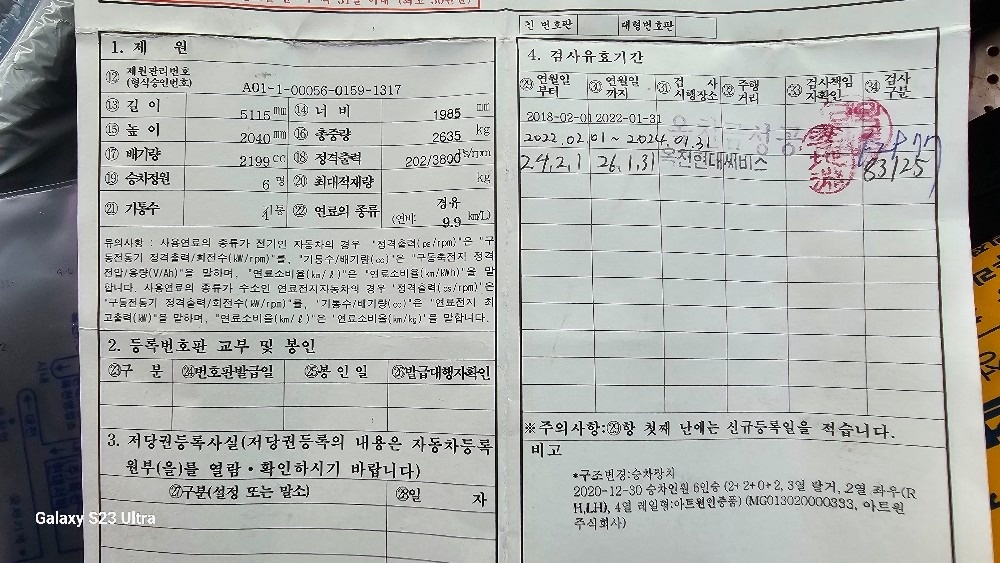 친 번호판 대형번호판
1. 제 원
⑫ 제원관리번호 (형식승인번호) A01-1-00056-0159-1317
⑬ 길 이 5115 mm ⑭ 너 비 1985 mm
⑮ 높 이 2040 mm ⑯ 총중량 2635 kg
⑰ 배기량 2199 cc ⑱ 정격출력 202/3800 ps/rpm
⑲ 승차정원 6 명 ⑳ 최대적재량 kg
㉑ 기통수 4 기통 ㉒ 연료의 종류 경유 (연비: 9.9 km/L)
유의사항 : 사용연료의 종류가 전기인 자동차의 경우 "정격출력(ps/rpm)"은 "구
동전동기 정격출력/회전수(kW/rpm)"를, "기통수/배기량(cc)"은 "구동축전지 정격
전압/용량(V/Ah)"을 말하며, "연료소비율(km/ℓ)"은 "연료소비율(km/kWh)"을 말
합니다. 사용연료의 종류가 수소인 연료전지자동차의 경우 "정격출력(ps/rpm)"은
"구동전동기 정격출력/회전수(kW/rpm)"를, "기통수/배기량(cc)"은 "연료전지 최
고출력(kW)"을 말하며, "연료소비율(km/ℓ)"은 "연료소비율(km/kg)"를 말합니다.
2. 등록번호판 교부 및 봉인
㉓구 분 ㉔번호판발급일 ㉕봉 인 일 ㉖발급대행자확인
3. 저당권등록사실(저당권등록의 내용은 자동차등록
원부(을)를 열람·확인하시기 바랍니다)
㉗구분(설정 또는 말소) ㉘일 자
4. 검사유효기간
㉙ 연월일 부터 ㉚ 연월일 까지 ㉛ 검 사 시행장소 ㉜ 주행 거리 ㉝ 검사책임 자확인 ㉞ 검사 구분
2018-02-01 2022-01-31
2022.02.01 ~ 2024.01.31
24.2.1 26.1.31 옥천현대써비스 83125
※주의사항:㉙항 첫째 난에는 신규등록일을 적습니다.
비고
*구조변경:승차장치
2020-12-30 승차인원 6인승 (2+2+0+2, 3열 탈거, 2열 좌우(R
H,LH), 4열 레일형:아트원인증품) (MG013020000333, 아트원
주식회사)
Galaxy S23 Ultra